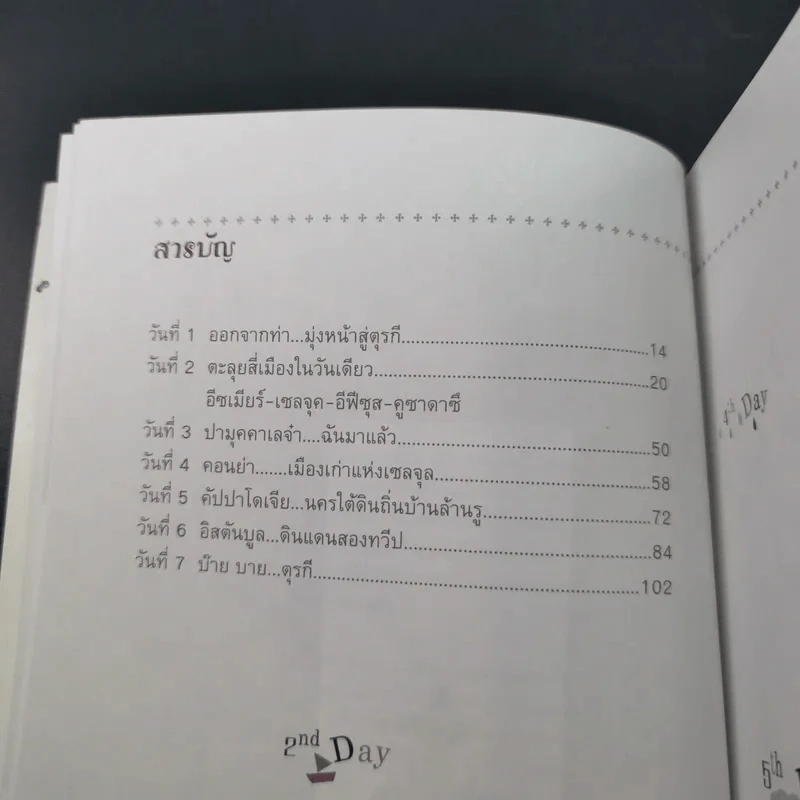 สารบัญ
วันที่ 1 ออกจากท่า...มุ่งหน้าสู่ตุรกี..........14
วันที่ 2 ตะลุยสี่เมืองในวันเดียว..........20
อีซเมียร์-เซลจุค-อีฟีซุส-คูซาดาซึ
วันที่ 3 ปามุคคาเลจ๋า....ฉันมาแล้ว..........50
วันที่ 4 คอนย่า.......เมืองเก่าแห่งเซลจุล..........58
วันที่ 5 คัปปาโดเจีย...นครใต้ดินถิ่นบ้านล้านรู..........72
วันที่ 6 อิสตันบูล...ดินแดนสองทวีป..........84
วันที่ 7 บ๊าย บาย...ตุรกี..........102
2nd Day
4th Day
5th